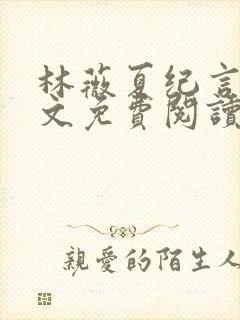 林薇夏纪言
文免費閱讀
親愛的陌生人